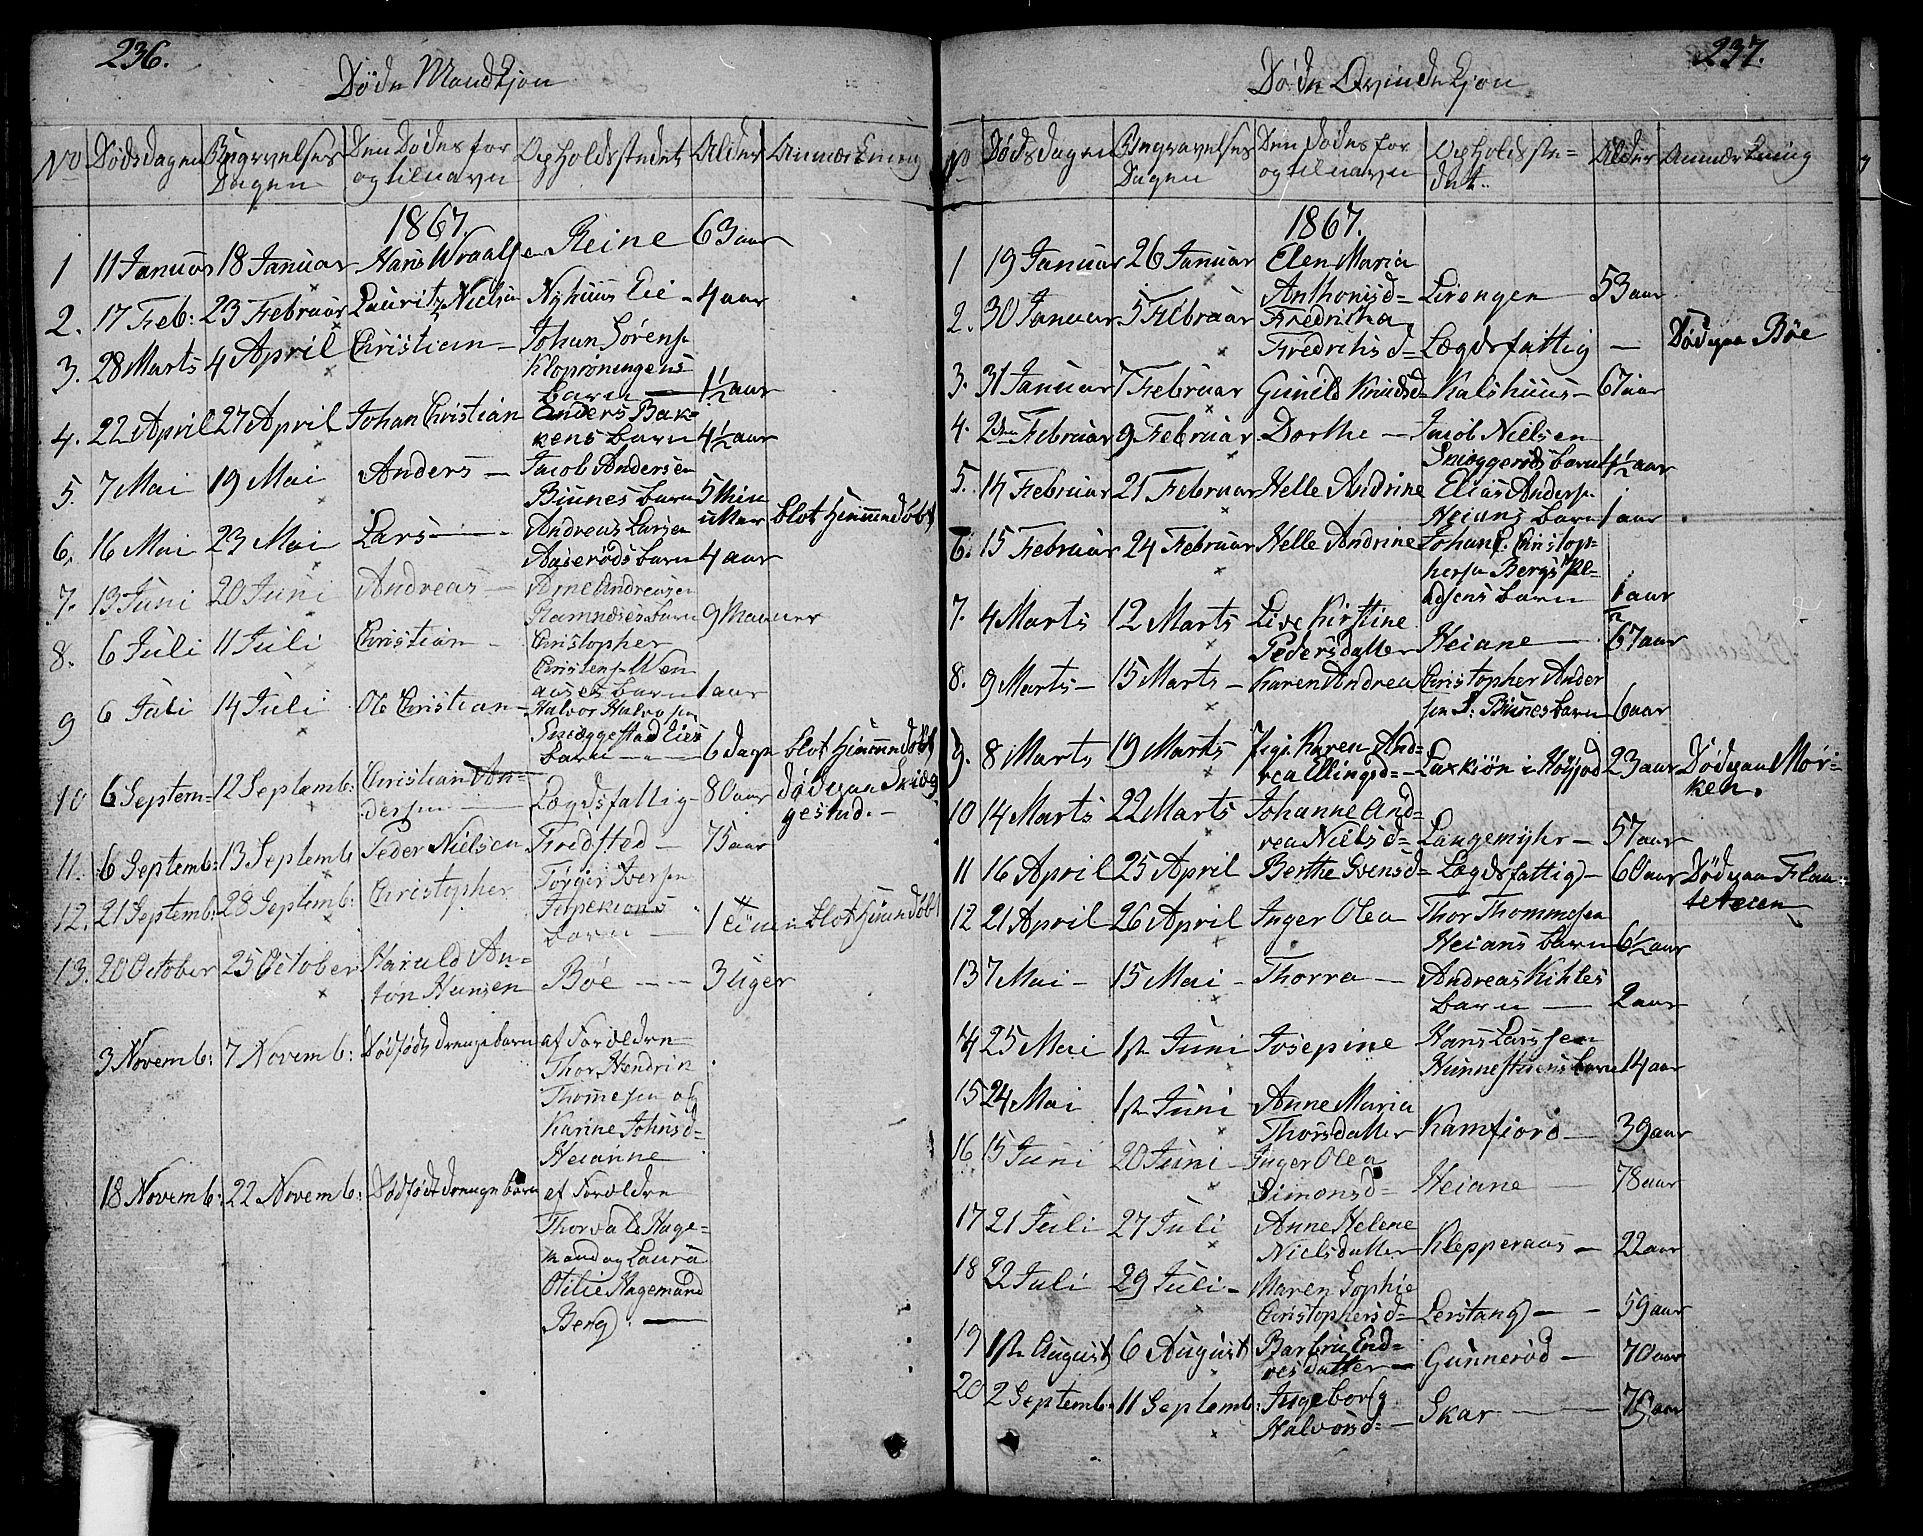 236.
Døde Mandkjøn
No Dødsdagen Begravelses Dagen Den Dødes for og tilnavn Opholdsstedet Alder Anmærkning
1867.
1 11 Januar 18 Januar Hans Wraalse Reine 63 aar
2. 17 Feb: 23 Februar Lauritz Nielsen Nyhuus Eie - 4 aar
3. 28 Marts 4 April Christian - Johan Sørens.
Kloprøningens
barn - 1 1/2 aar
4. 22 April 27 April Johan Christian Anders Bak-
kens barn 4 1/2 aar
5. 7 Mai 19 Mai Anders - Jacob Andersen
Biunes barn 5 Min
uter blot hiemmedøbt
6. 16 Mai 23 Mai Lars - Andreas Larsen
Aaserøds barn 4 aar
7. 13 Juni 20 Juni Andreas - Arne Andreasen
Ramnæsies barn 9 Maaner
8. 6 Juli 11 Juli Christian - Christopher
Christens.
barn 1 aar
9 6 Juli 14 Juli Ole Christian - Halvor Halvorsen
Smæggestad Eies
barn - - 6 dage blot hiemmedøbt
10 6 Septem- 12 Septemb: Christian An-
dersen Lægdsfattig - 80 aar Død paa Skiæg
gestad. -
11. 6 Septemb: 13 Septemb Peder Nielsen Fredsted - 75 aar
12. 21 Septemb: 28 Septemb: Christopher Torger Iversen
Jerpekions
barn - 1 Time blot hiemmedøbt
13. 20 October 25 October Harald An-
ton Hansen Bøe - - 3 uger
3 Novemb: 7 Novemb: Dødfødt drengebarn af Forældre
Thor Hendrik
Thomesen og
Karine Johnsd=
Heianne
18 Novemb: 22 Novemb: Dødfødt drengebarn af Forældre
Thorvald Hage-
mand og Laura
Otilie Hagemand
Berg. -
237.
Døde Qvindekjøn
No Dødsdagen Begravelses Dagen Den Dødes for og tilnavn Opholdsste-
det. Alder Anmærkning
1867.
1 19 Januar 26 Januar Elen Maria
Anthonisd= Lirengen 53 aar
2. 30 Januar 5 Februar Fredrikka
Fredriksd= Lægdsfattig - Død paa Bøe
3. 31 Januar 7 Februar Gunild Knudsd Kalshuus - 67 aar
4. 2den Februar 9 Februar Dorthe - Jacob Nielsen
Smøggerøds barn 4 1/2 aar
5. 14 Februar 21 Februar Helle Andrine Elias Anders.
Heians barn 1 aar
6. 15 Februar 24 Februar Helle Andrine Johan C. Christop-
hersen Bergs Pl-
adsens barn 1/2 aar
7. 4 Marts 12 Marts Live Kirstine
Pedersdatter Heiane - 67 aar
8. 9 Marts - 15 Marts - Karen Andrea Christopher Ander
sen S: Biunes barn 6 aar
9. 8 Marts 19 Marts Pige Karen And-
rea Ellingsd= - Laxkiøn i Høyjord 23 aar Død paa Mør-
ken.
10 14 Marts 22 Marts Johanne And-
rea Nielsd= Langemyhr - 57 aar
11 16 April 25 April Berthe Svensd= Lægdsfattig - 60 aar Død paa Flaa-
teteien
12 21 April 26 April Inger Olea Thor Thommesen
Heians barn 6 1/2 aar
13 7 Mai - 15 Mai - Thorra - Andreas Kihles
barn - 2 aar
14 25 Mai 1ste Juni Josepine Hans Larssen
Hunnestuens barn 14 aar
15 24 Mai 1ste Juni Anne Maria
Thorsdatter Kamfiord - 39 aar
16 15 Juni 20 Juni - Inger Olea
Simonsd= Heiane - 78 aar
17 21 Juli 27 Juli Anne Helene
Nielsdatter Klepperaas - 22 aar
18 22 Juli 29 Juli - Maren Sophie
Christophersd= Lerstang - 59 aar
19 1ste August 6 August Barbru End=
resdatter - Gunnerød - 70 aar
20 2 Septemb: 11 Septemb: Ingeborg
Halvorsd= - Skar - 75 aar